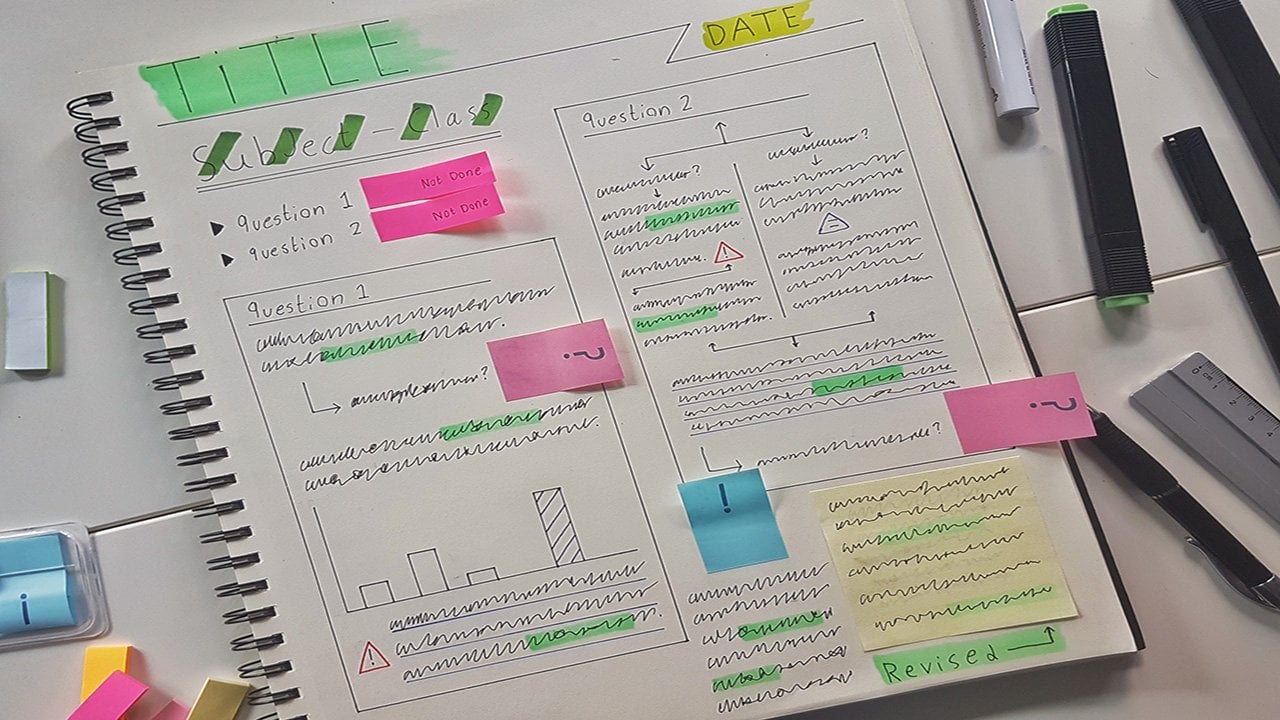 TiTLE
DATE
Subject - Class
question 1
Not Done
question 2
Not Done
question 1
?
?
!
question 2
?
?
!
!
?
?
!
Revised
0 cm 1 2 3 4
!